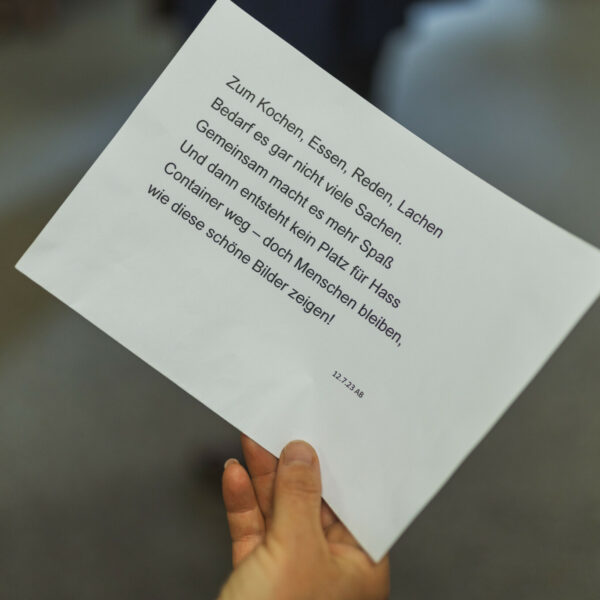 Zum Kochen, Essen, Reden, Lachen
Bedarf es gar nicht viele Sachen.
Gemeinsam macht es mehr Spaß
Und dann entsteht kein Platz für Hass
Container weg – doch Menschen bleiben,
wie diese schöne Bilder zeigen!
12.7.23 AB